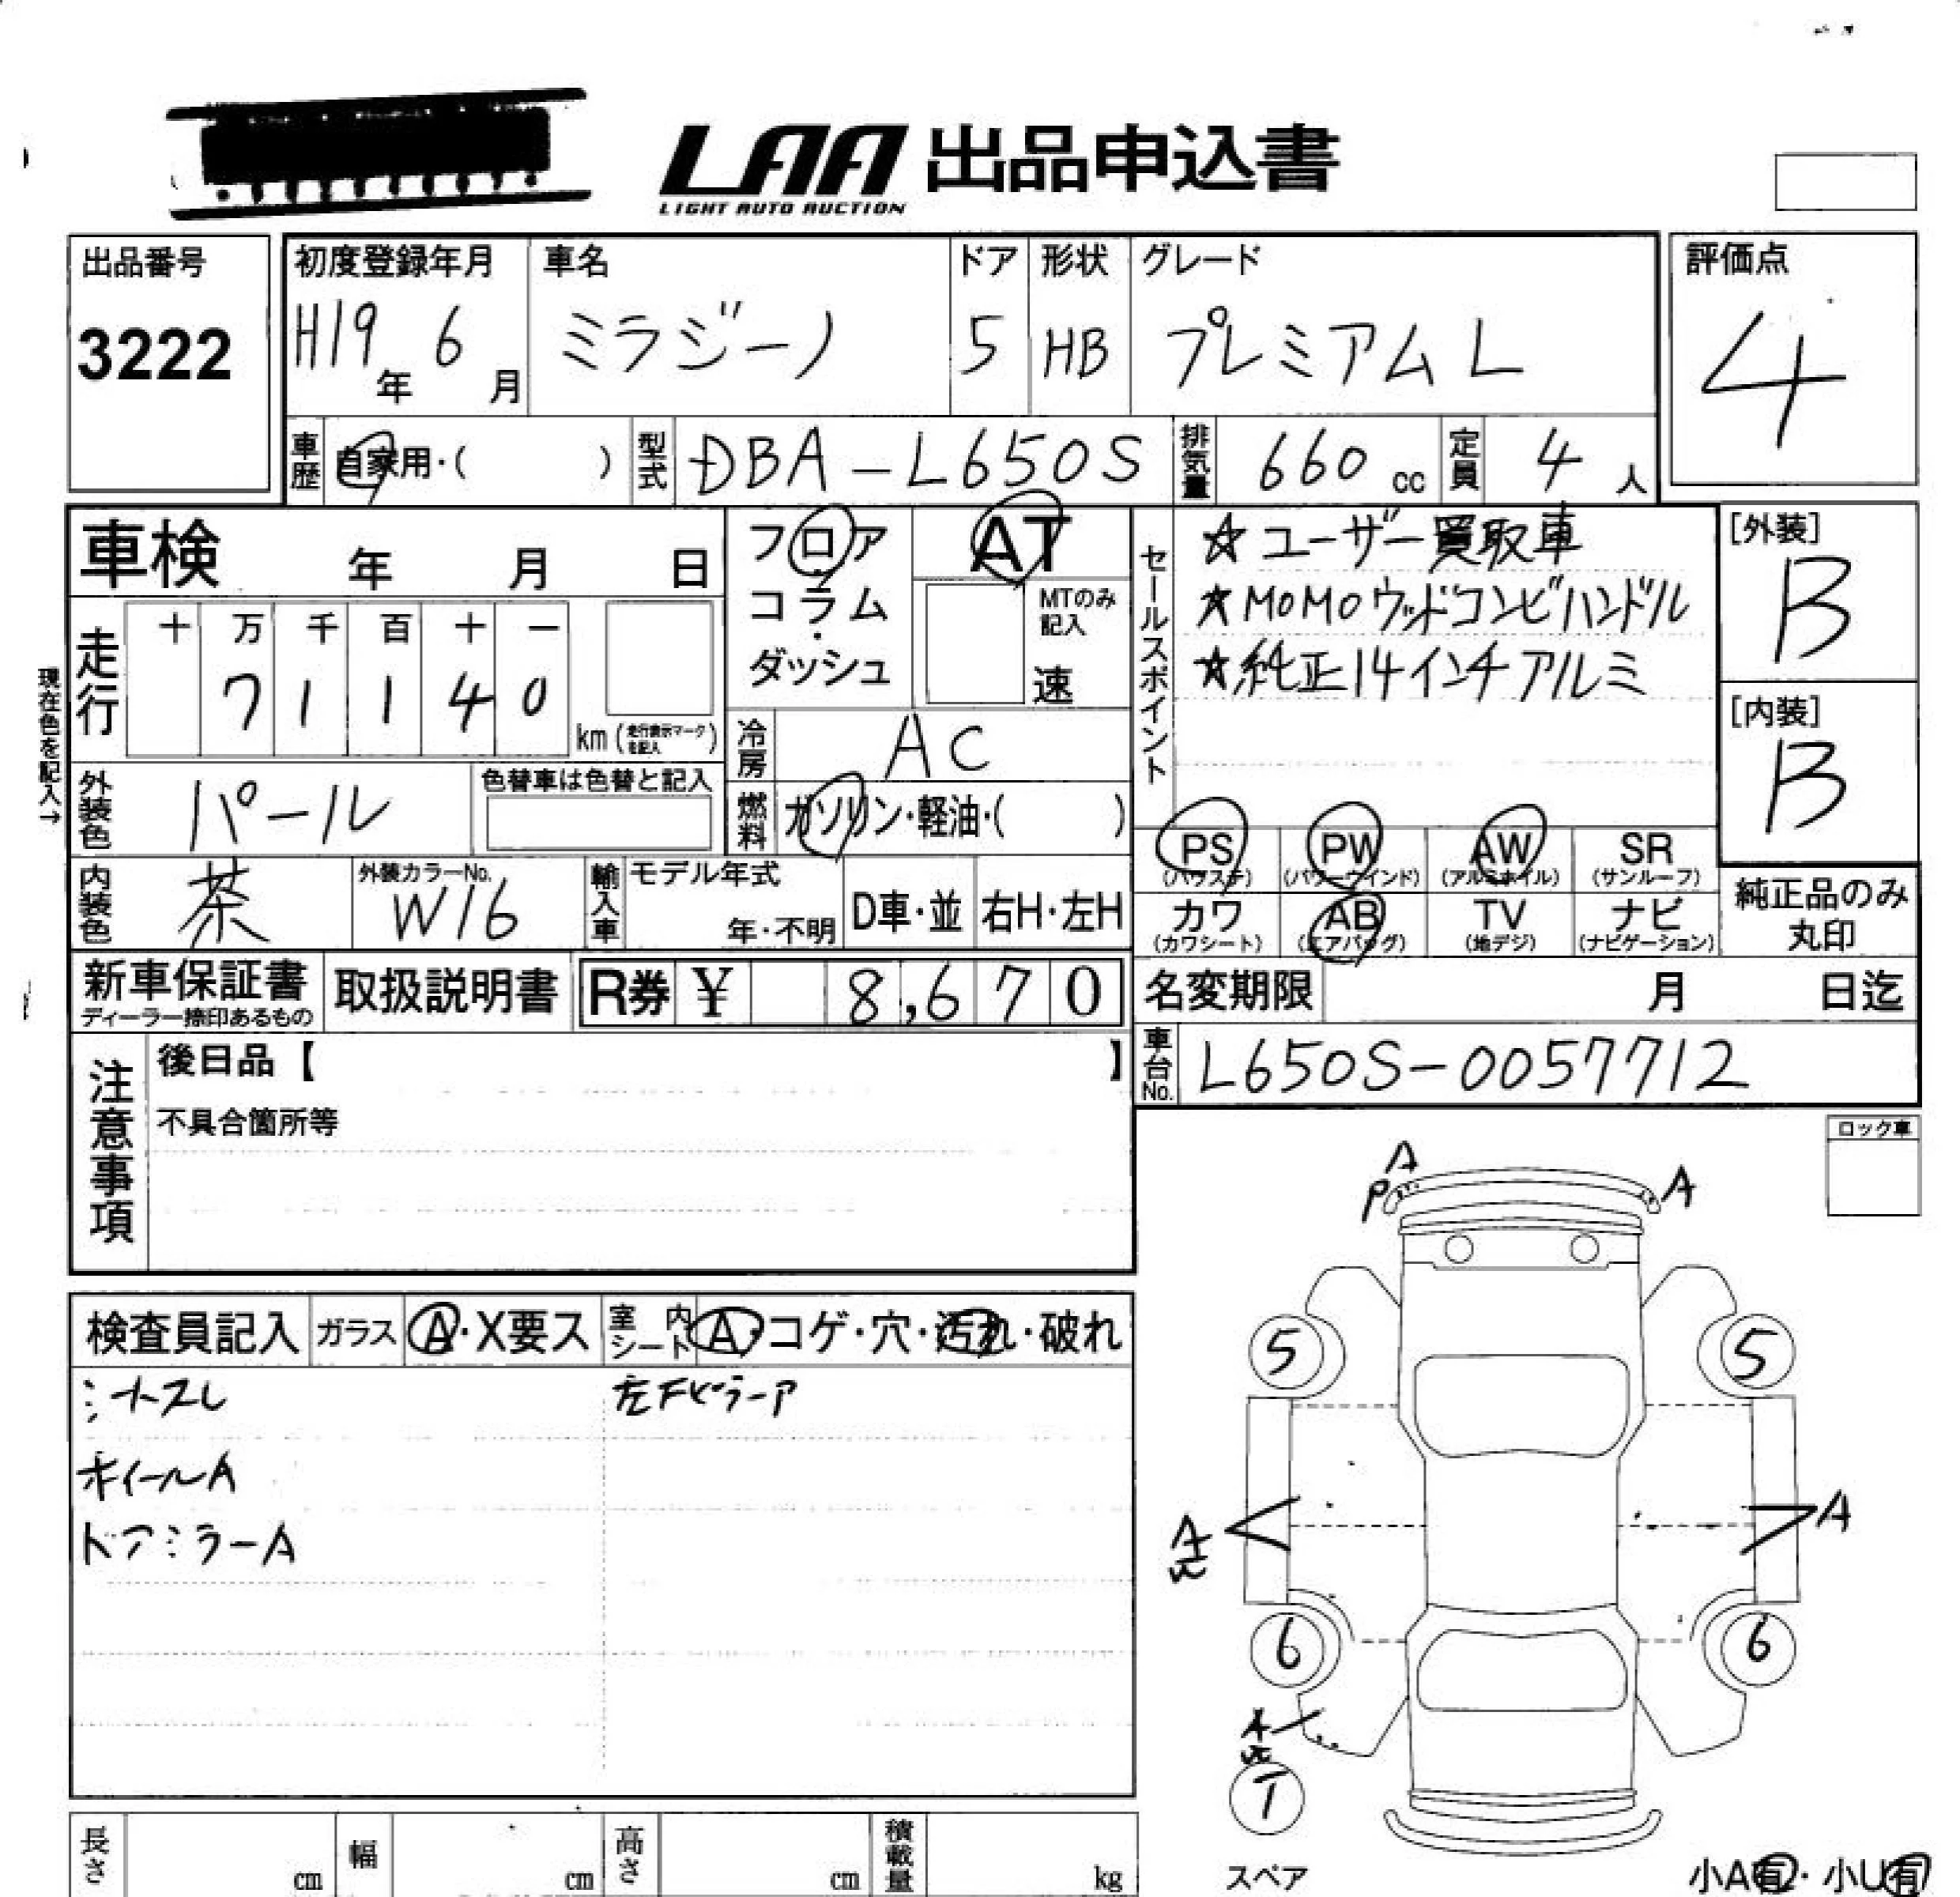 LAA 出品申込書
LIGHT AUTO AUCTION
出品番号
3222
初度登録年月
H19年 6月
車名
ミラジーノ
ドア
5
形状
HB
グレード
プレミアム L
評価点
4
車歴 自家用・( )
型式 DBA-L650S
排気量 660 cc
定員 4 人
車検 年 月 日
フロア
コラム
・
ダッシュ
AT
MTのみ
記入
速
セールスポイント
☆ユーザー買取車
☆MOMOウッドコンビハンドル
☆純正14インチアルミ
[外装]
B
[内装]
B
現在色を記入→
走行
十 万 千 百 十 一
7 1 1 4 0
km (走行表示マークを記入)
冷房 AC
燃料 ガソリン・軽油・( )
外装色 パール
色替車は色替と記入
内装色 茶
外装カラーNo.
W16
輸入車
モデル年式
年・不明
D車・並
右H・左H
PS
(パワステ)
PW
(パワーウインド)
AW
(アルミホイル)
SR
(サンルーフ)
カワ
(カワシート)
AB
(エアバッグ)
TV
(地デジ)
ナビ
(ナビゲーション)
純正品のみ
丸印
新車保証書
ディーラー捺印あるもの
取扱説明書
R券 ¥ 8,670
名変期限 月 日迄
車台No. L650S-0057712
注意事項
後日品【 】
不具合箇所等
ロック車
検査員記入
ガラス A・X要ス
室内シート A・コゲ・穴・汚れ・破れ
ホイールA
ドアミラーA
A
P
A
5
5
A
A
6
6
A
T
スペア
小A有・小U有
長さ cm
幅 cm
高さ cm
積載量 kg